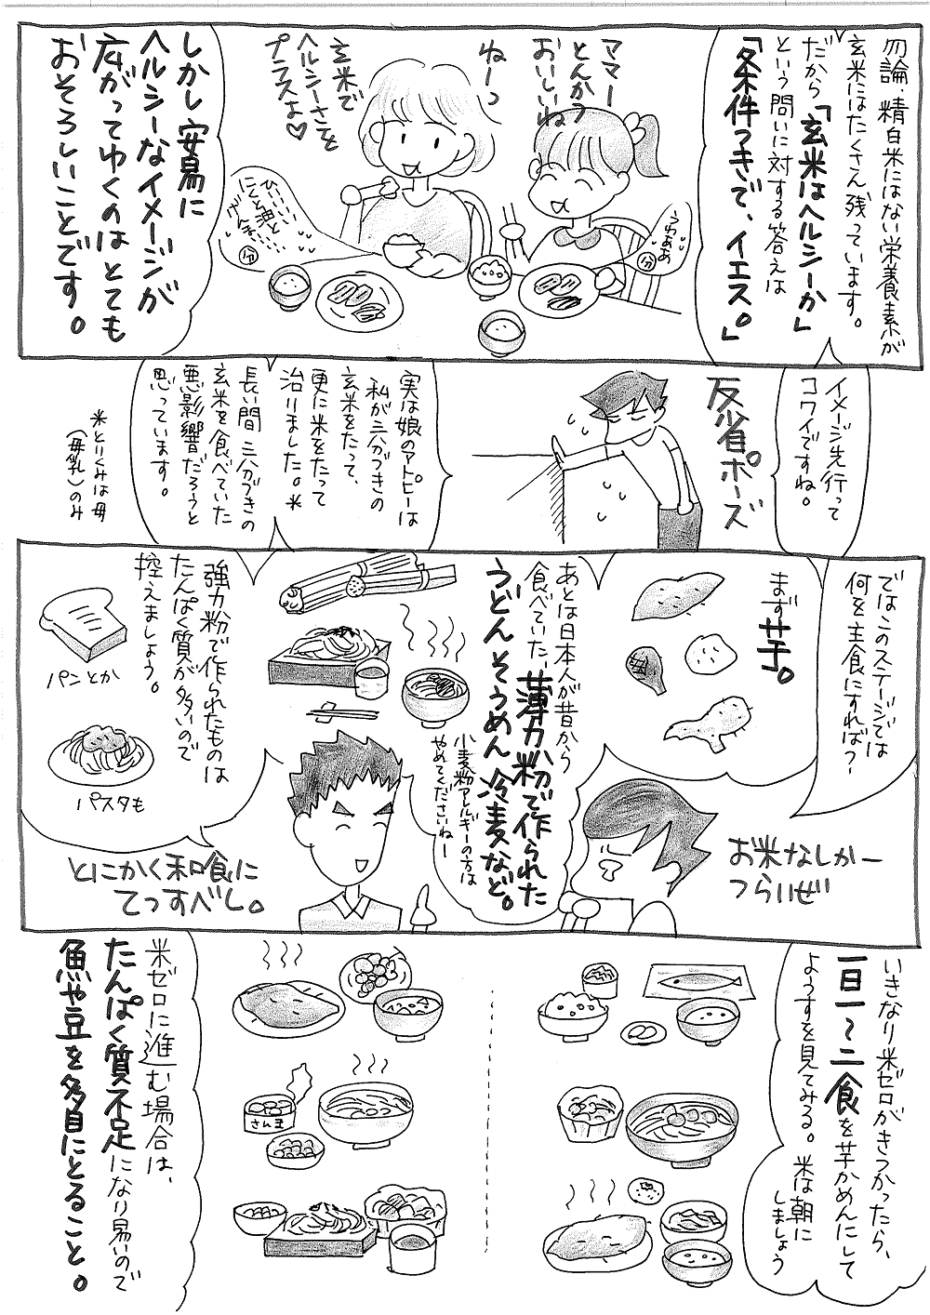 勿論、精白米にはない栄養素が
玄米にはたくさん残っています。
だから「玄米はヘルシーか」
という問いに対する答えは
「条件つきで、イエス。」
ママー
とんかつ
おいしいね
うわああ
ねーっ
玄米で
ヘルシーさを
プラスよ♡
しかし安易に
ヘルシーなイメージが
広がってゆくのはとても
おそろしいことです。
イメージ先行って
コワイですね。
反省ポーズ
実は娘のアトピーは
私が三分づきの
玄米をたって、
更に米をたって
治りました。※
長い間三分づきの
玄米を食べていた
悪影響だろうと
思っています。
※とりくみは母
(母乳)のみ
ではこのステージでは
何を主食にすれば?
まず芋。
お米なしかー
つらいぜ
あとは日本人が昔から
食べていた、薄力粉で作られた
うどんそうめん冷麦など。
小麦粉アレルギーの方は
やめてくださいねー
強力粉で作られたものは
たんぱく質が多いので
控えましょう。
パンとか
パスタも
とにかく和食に
てっすべし。
いきなり米ゼロがきつかったら、
一日一〜二食を芋かめんにして
ようすを見てみる。米は朝に
しましょう
さんま
米ゼロに進む場合は、
たんぱく質不足になり易いので
魚や豆を多目にとること。